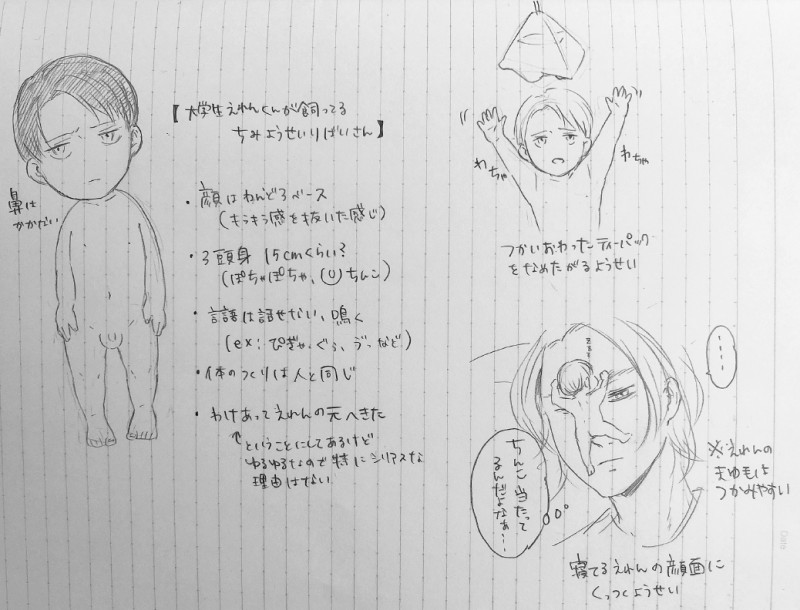 【大学生えれんくんが飼ってる
ちみようせいりばいさん】
鼻は
かかない
・顔はねんどろベース
(キラキラ感を抜いた感じ)
・3頭身 15cmくらい?
(ぽちゃぽちゃ、(U)ちんこ)
・言語は話せない、鳴く
(ex:ぴぎゃ、ぐぅ、ゔっなど)
・体のつくりは人と同じ
・わけあってえれんの元へきた
↑ということにしてあるけど
ゆるゆるなので特にシリアスな
理由はない
わちゃ
わちゃ
つかいおわったティーパック
をなめたがるようせい
zzz
‥‥
ちんこ当たって
るんだよなぁ‥
※えれんの
まゆ毛は
つかみやすい
寝てるえれんの顔面に
くっつくようせい